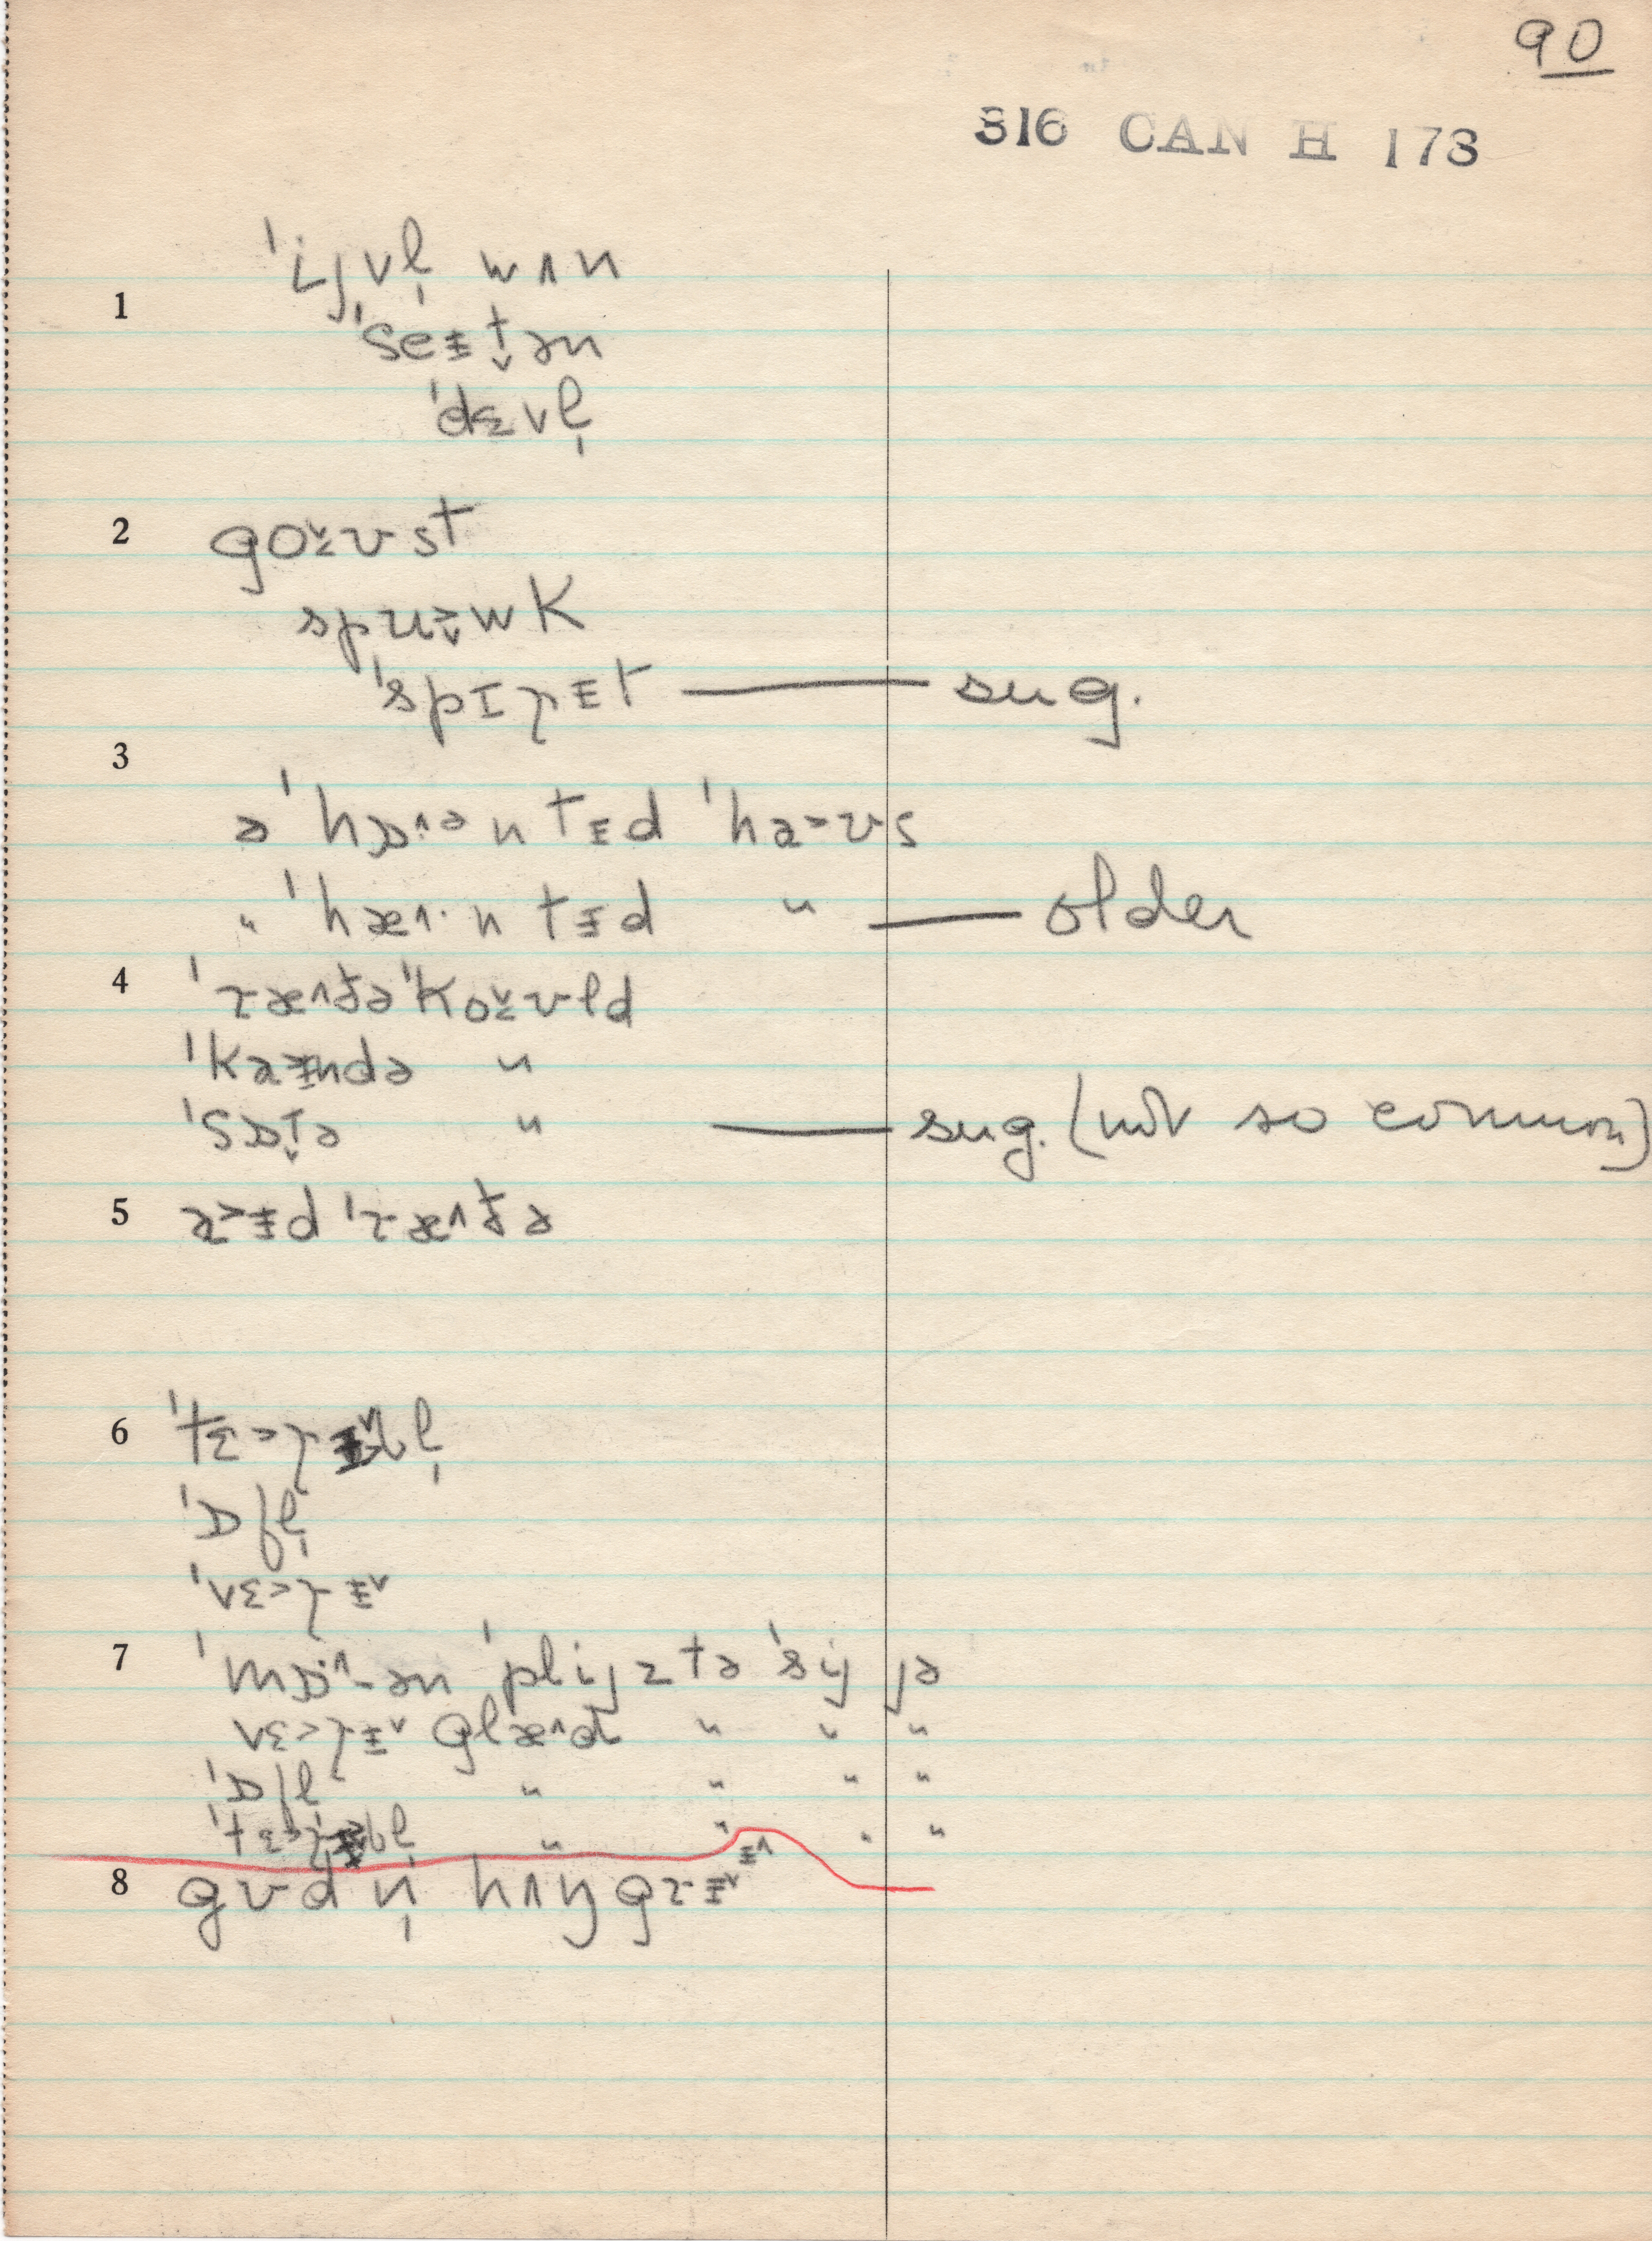 90
316 CAN H 173
1 ˈijvl̩ wʌn
ˈseᵻt̬ən
ˈdɛvl̩
2 goʊst
spuwk
ˈspɪrᵻt — sug.
3
ə ˈhɒntᵻd ˈhaʊs
" ˈhæntᵻd " — older
4 ˈræðə ˈkoʊld
ˈkaᵻndə "
ˈsɒt̬ə " — sug. (not so common)
5 aᵻd ˈræðə
6 ˈtɛrᵻbl̩
ˈɒfl̩
ˈvɛrᵻ
7 ˈmɒən ˈplijztə ˈsij jə
vɛrᵻ glæd " " "
ˈɒfl " " " "
ˈtɛrᵻbl̩ " " " "
8 gʊdn̩ hʌŋgrᵻ